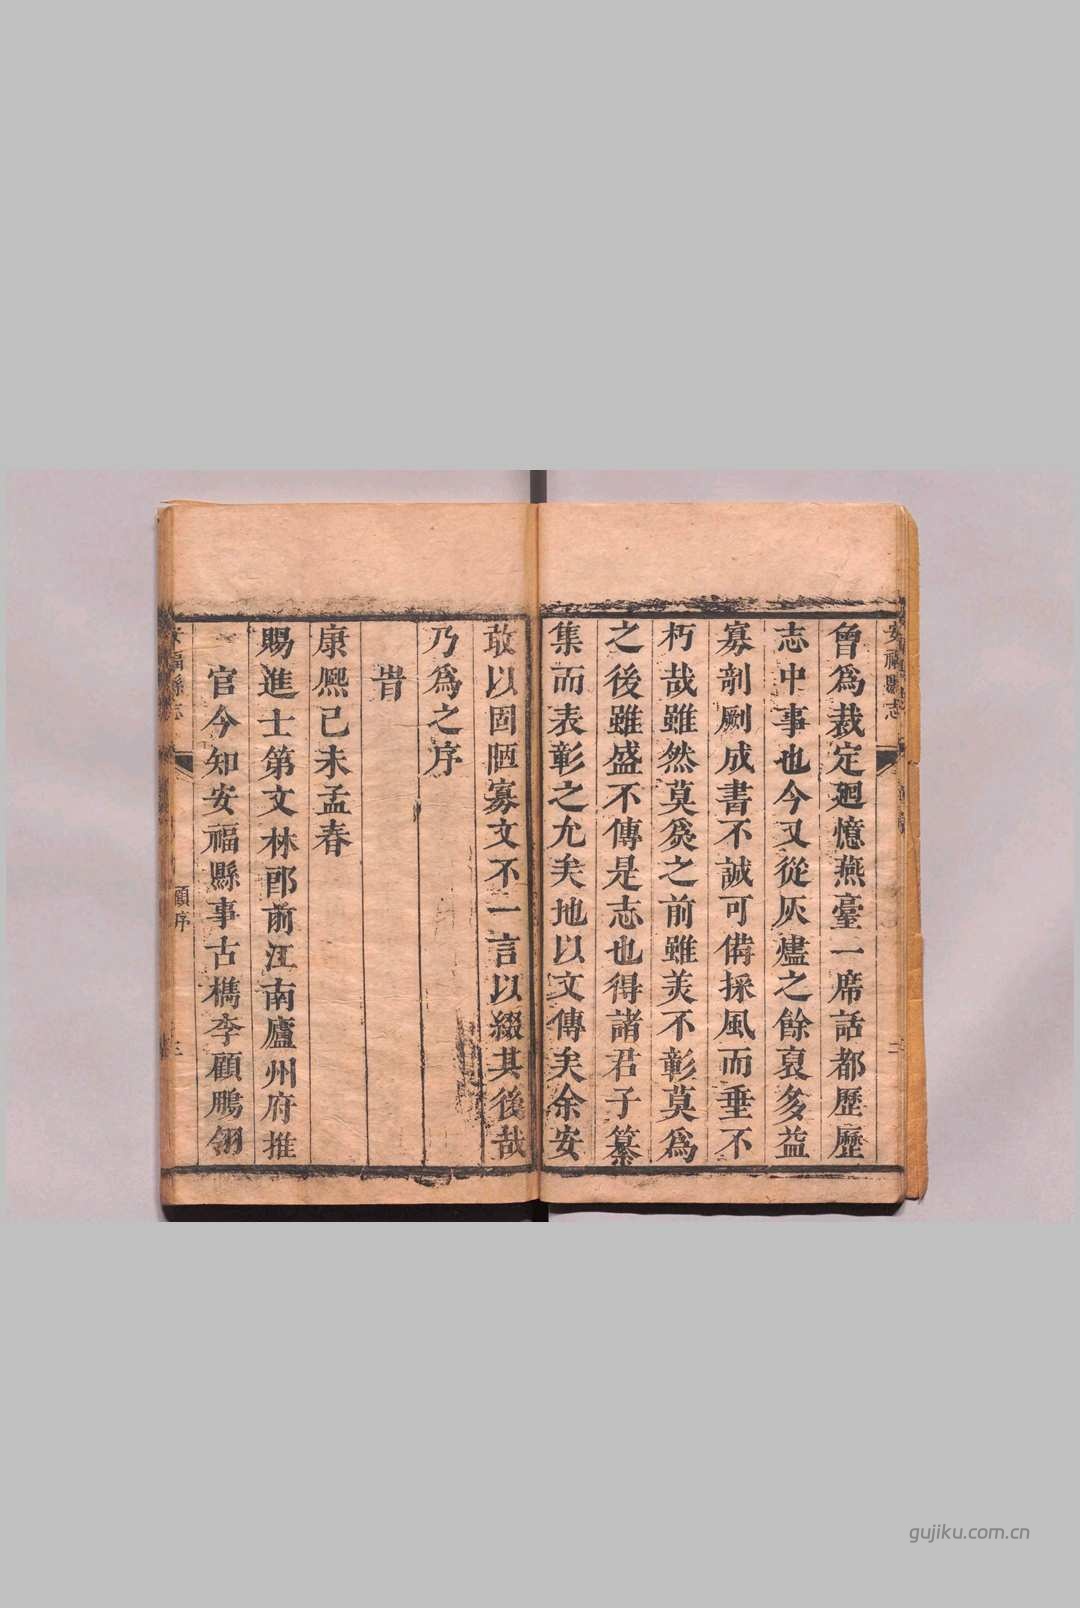 安福縣志
曾爲裁定廻憶燕臺一席話都歷歷
志中事也今又從灰燼之餘裒多益
寡剞劂成書不誠可備採風而垂不
朽哉雖然莫爲之前雖美不彰莫爲
之後雖盛不傳是志也得諸君子纂
集而表彰之允矣地以文傳矣余安
敢以固陋寡文不一言以綴其後哉
乃爲之序
旹
康熙己未孟春
賜進士第文林郎前江南廬州府推
官今知安福縣事古檇李顧鵬翎
安福縣志 顧序 三
gujiku.com.cn